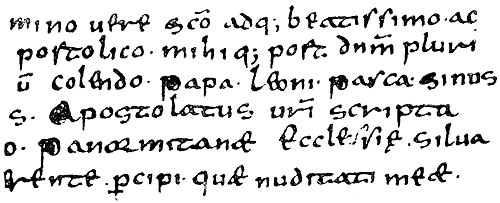 mino uere sco adq; beatissimo. ac
postolico. mihiq; post dnm pluri
u colendo. papa. leoni. pasca. sinus
s. Apostolatus uri scripta
o. panormitanae ecclessię. silua
rente. pcipi. quae nuditati meae.